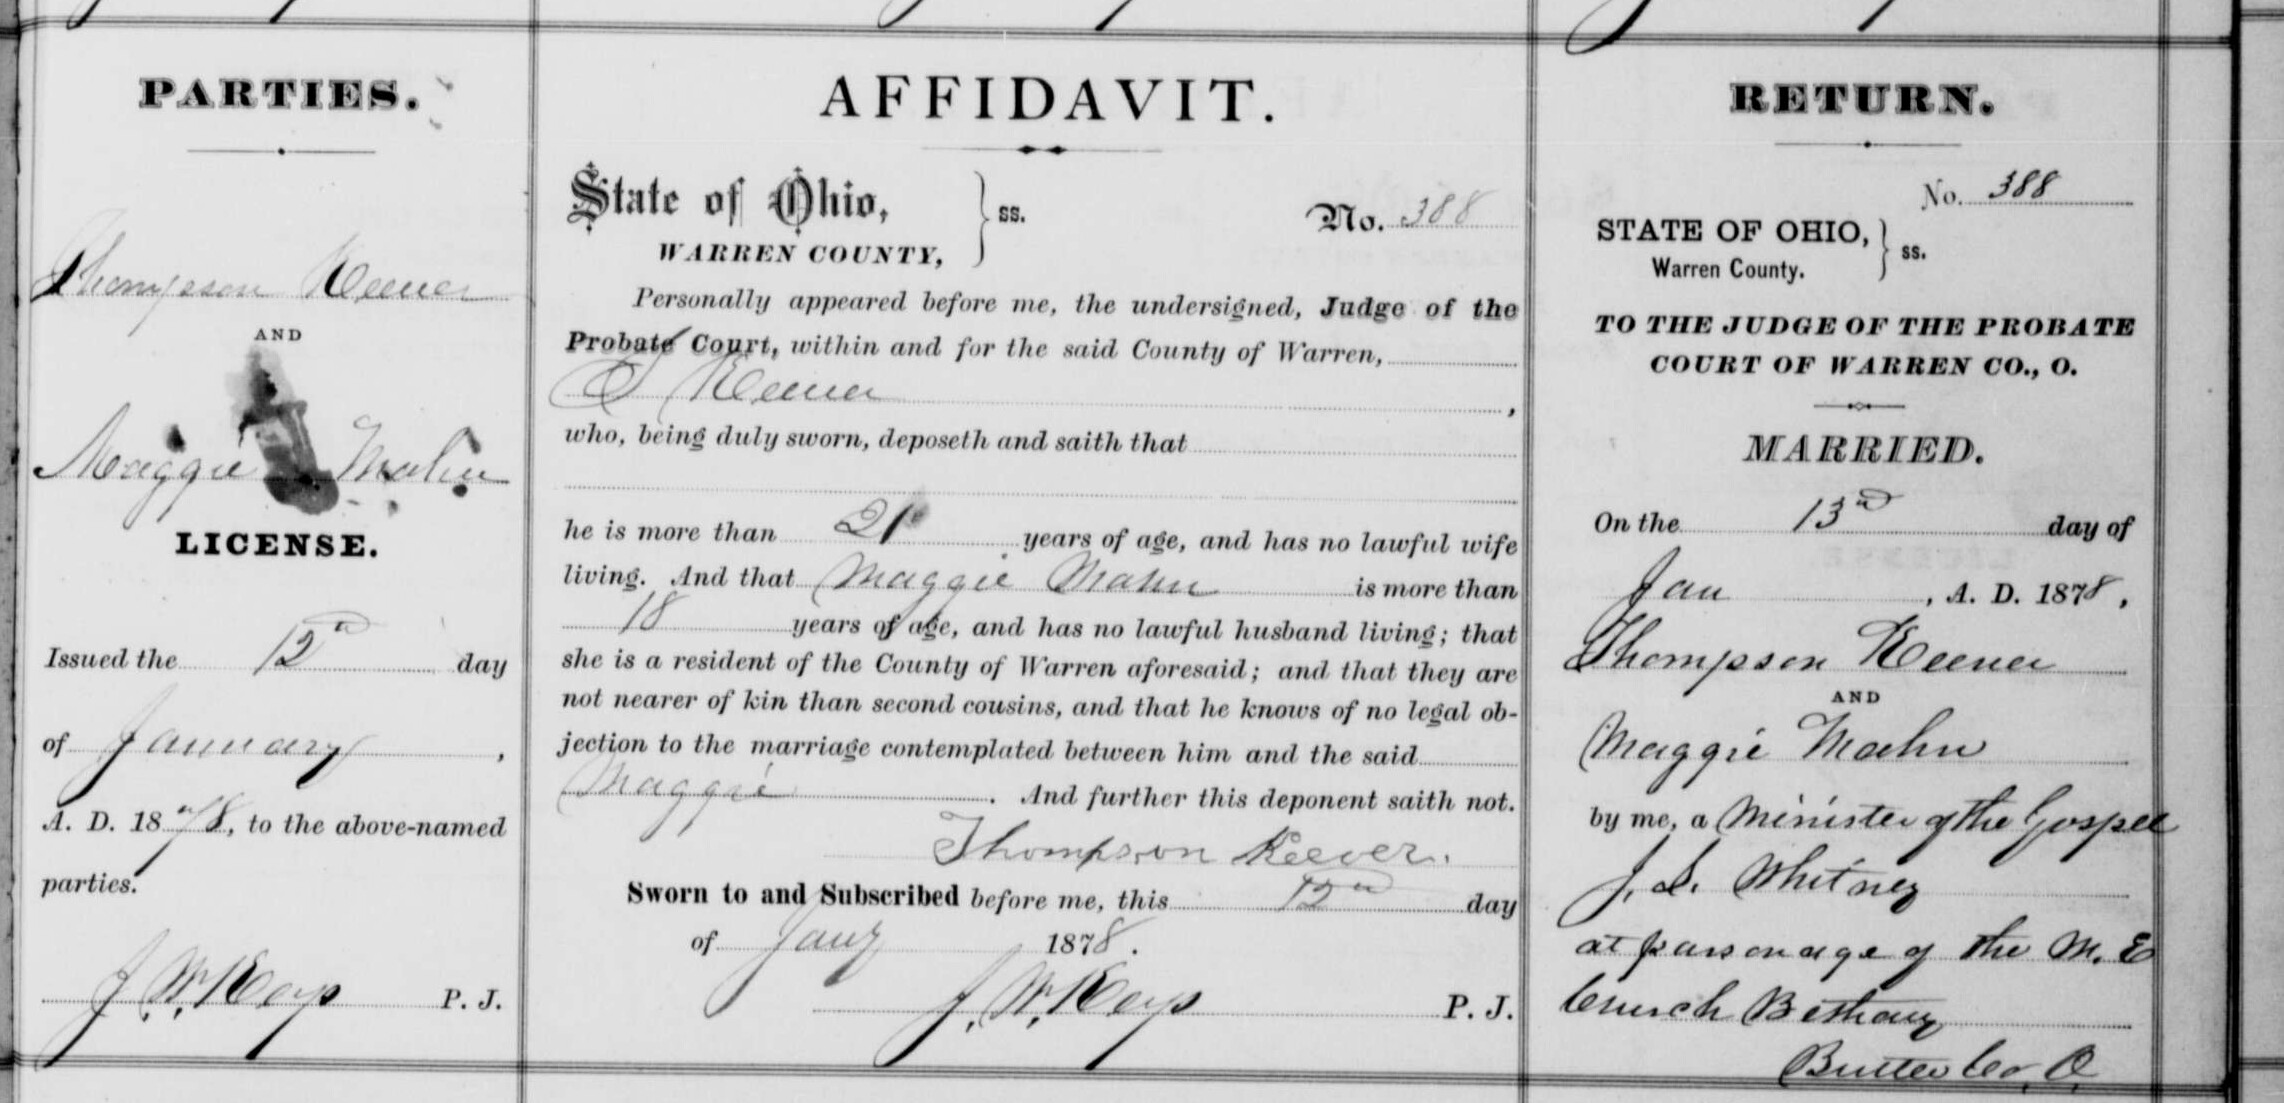 PARTIES.
Thompson Keever
AND
Maggie Mahn
LICENSE.
Issued the 12th day
of January,
A. D. 1878, to the above-named
parties.
J. W. Keys P. J.
AFFIDAVIT.
State of Ohio, } ss.
WARREN COUNTY,
No. 388
Personally appeared before me, the undersigned, Judge of the
Probate Court, within and for the said County of Warren,
T Keever,
who, being duly sworn, deposeth and saith that
he is more than 21 years of age, and has no lawful wife
living. And that Maggie Mahn is more than
18 years of age, and has no lawful husband living; that
she is a resident of the County of Warren aforesaid; and that they are
not nearer of kin than second cousins, and that he knows of no legal ob-
jection to the marriage contemplated between him and the said
Maggie. And further this deponent saith not.
Thompson Keever.
Sworn to and Subscribed before me, this 12th day
of Jany 1878.
J. W. Keys P. J.
RETURN.
No. 388
STATE OF OHIO, } ss.
Warren County.
TO THE JUDGE OF THE PROBATE
COURT OF WARREN CO., O.
MARRIED.
On the 13th day of
Jan, A. D. 1878,
Thompson Keever
AND
Maggie Mahn
by me, a Minister of the Gospel
J. S. Whitney
at parsonage of the M. E
Church Bethany
Butler Co. O.